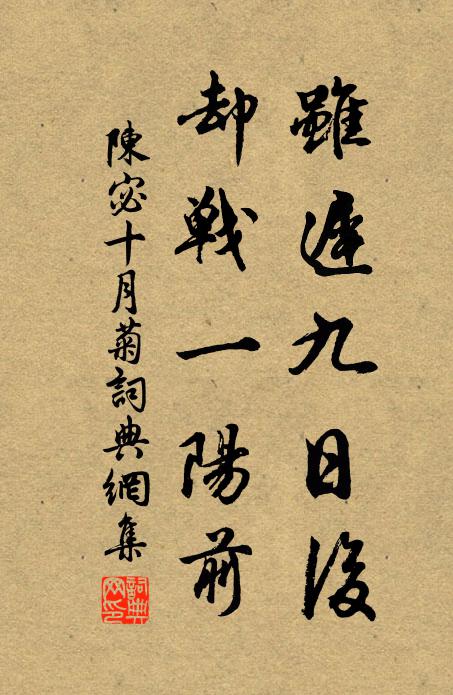 雖遲九日後
却戰一陽前
陳宓十月菊詞典網集
詞典網印